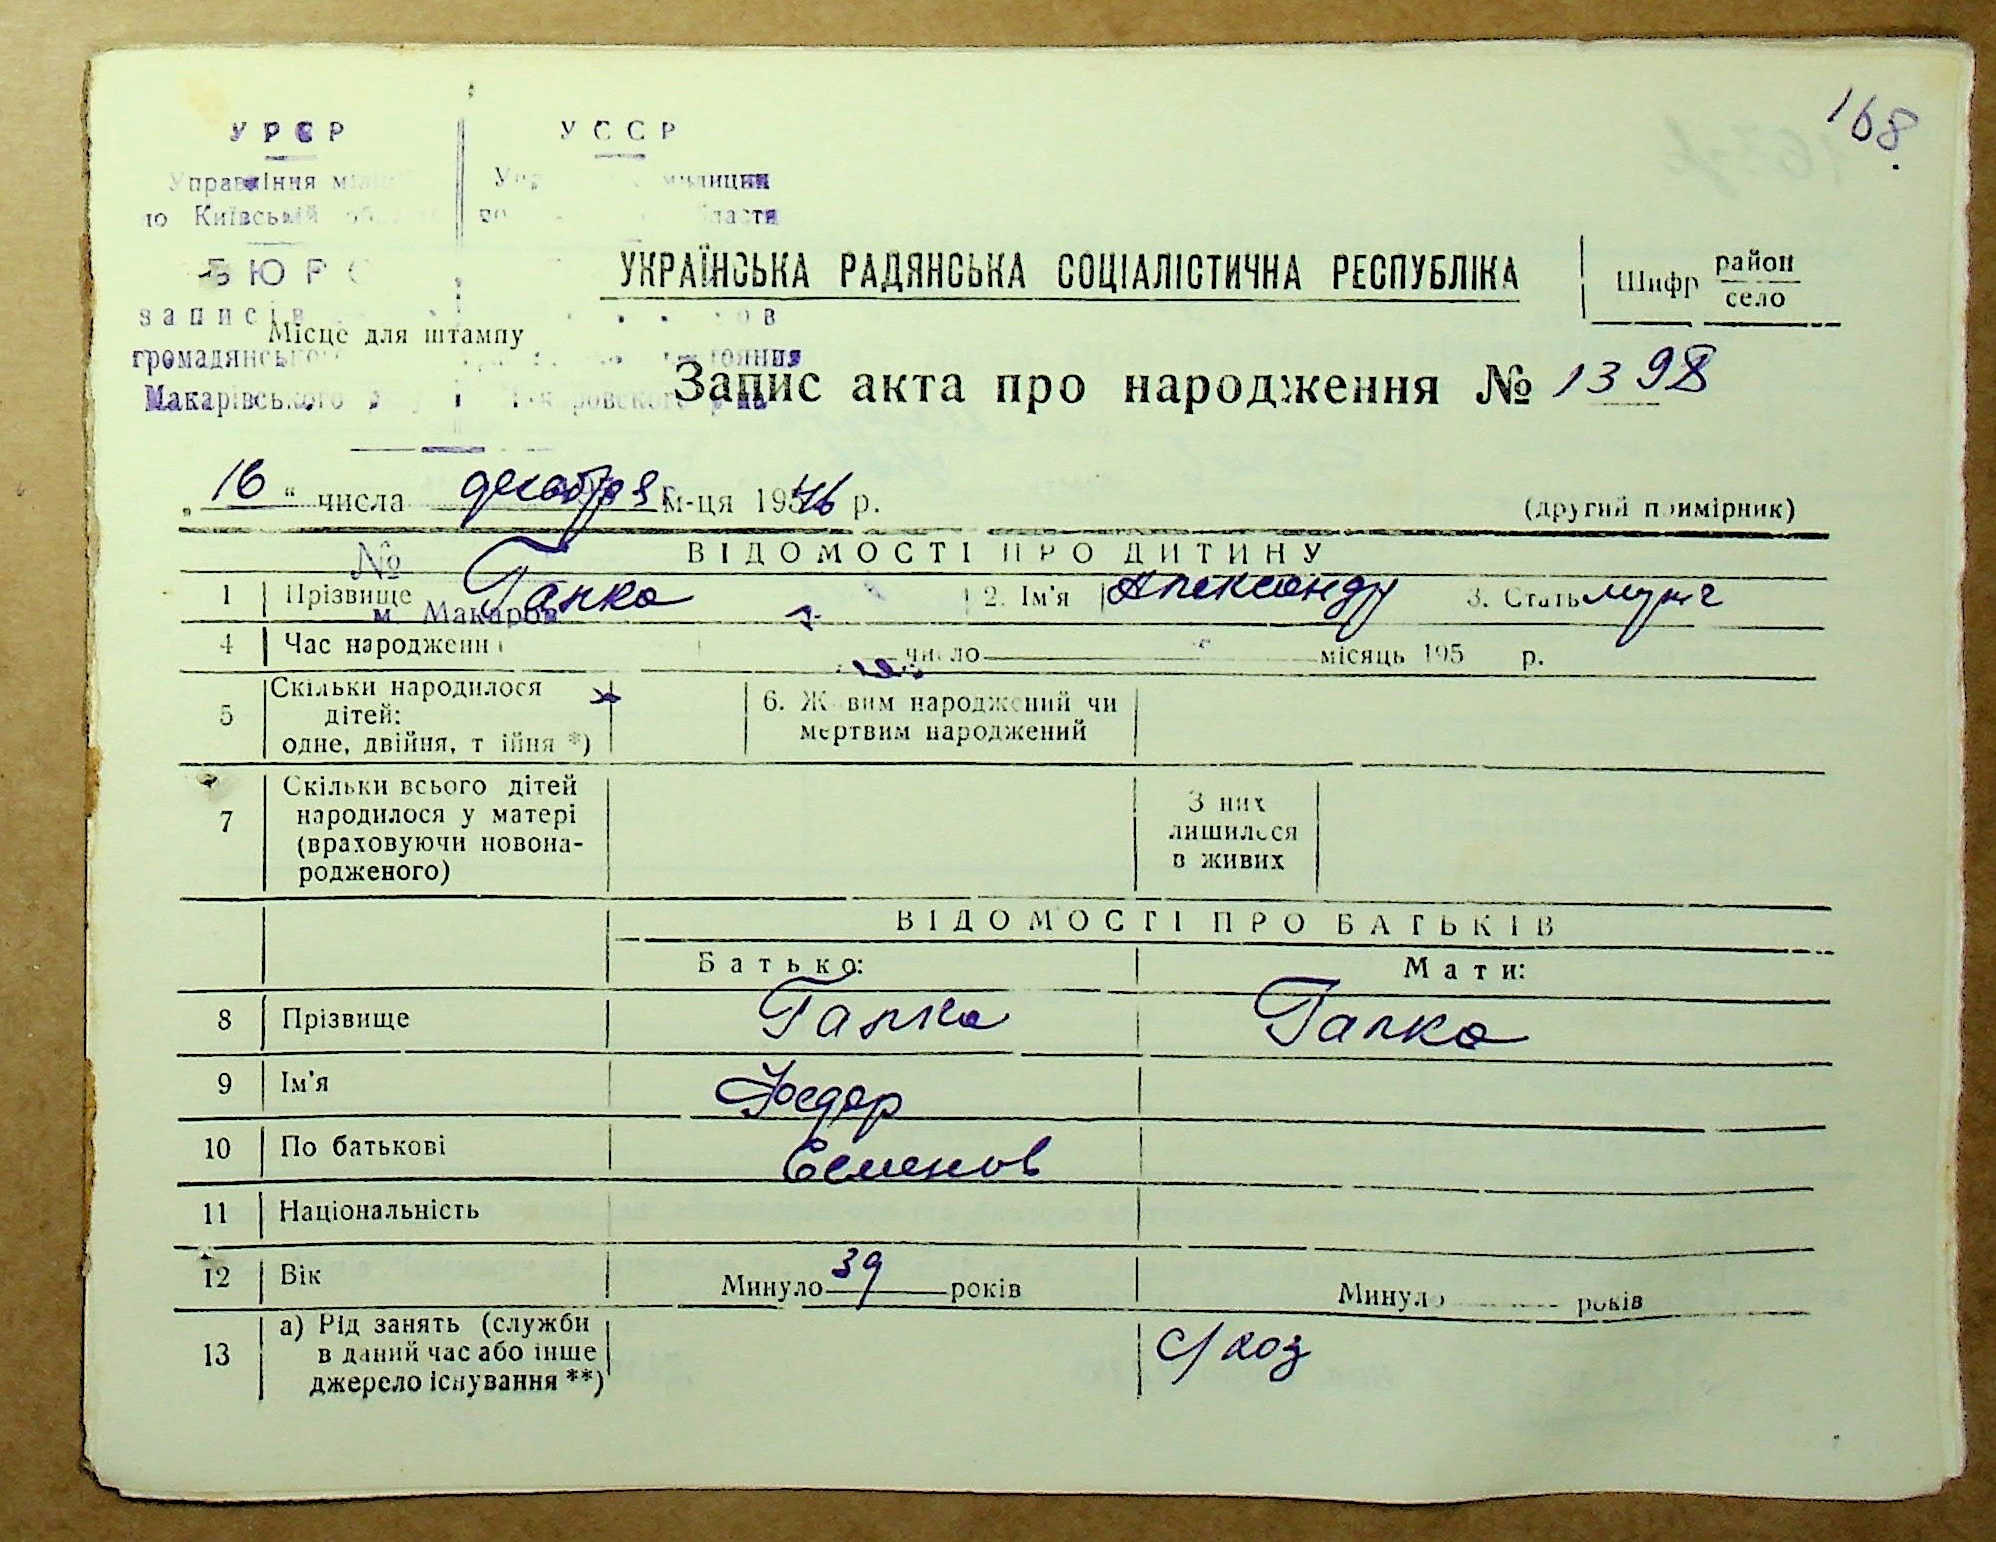 168.
УРСР УССР
Управління
по Київській
БЮРО
записів
Місце для штампу
громадянського
Макарівського
УКРАЇНСЬКА РАДЯНСЬКА СОЦІАЛІСТИЧНА РЕСПУБЛІКА
Шифр район
село
Запис акта про народження № 1398
„16“ числа декабря м-ця 1946 р. (другий примірник)
№
ВІДОМОСТІ ПРО ДИТИНУ
1 Прізвище Гапка 2. Ім'я Александр 3. Стать муж
м. Макаров
4 Час народження число місяць 195 р.
5 Скільки народилося
дітей:
одне, двійня, трійня *)
6. Живим народжений чи
мертвим народжений
7 Скільки всього дітей
народилося у матері
(враховуючи новона-
родженого)
З них
лишилося
в живих
ВІДОМОСТІ ПРО БАТЬКІВ
Батько: Мати:
8 Прізвище Гапка Гапка
9 Ім'я Федор
10 По батькові Семенов
11 Національність
12 Вік Минуло 39 років Минуло років
13 а) Рід занять (служби
в даний час або інше
джерело існування **)
с/хоз